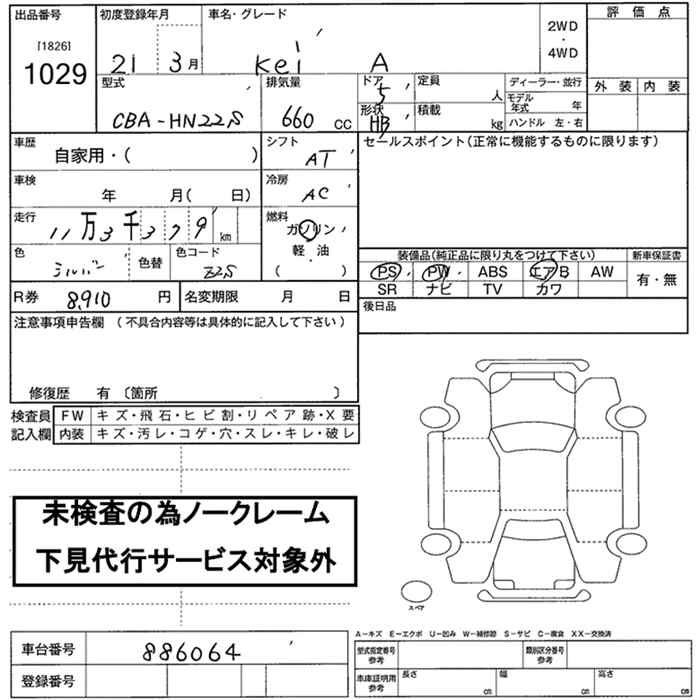 出品番号
[1826]
1029
初度登録年月
21 3月
車名・グレード
Kei A
2WD
・
4WD
評価点
外装 内装
型式
CBA-HN22S
排気量
660 CC
ドア
5
形状
HB
定員
人
積載
kg
ディーラー・並行
モデル年式 年
ハンドル 左・右
車歴
自家用・( )
シフト
AT
セールスポイント(正常に機能するものに限ります)
車検
年 月( 日)
冷房
AC
走行
11万3千379km
燃料
ガソリン
軽・油
( )
色
シルバー
色替
色コード
Z2S
装備品(純正品に限り丸をつけて下さい)
PS PW ABS エアB AW
SR ナビ TV カワ
新車保証書
有・無
R券 8,910 円
名変期限 月 日
後日品
注意事項申告欄 (不具合内容等は具体的に記入して下さい)
修復歴 有 〔箇所 〕
検査員記入欄
FW キズ・飛石・ヒビ割・リペア跡・X要
内装 キズ・汚レ・コゲ・穴・スレ・キレ・破レ
未検査の為ノークレーム
下見代行サービス対象外
スペア
車台番号 886064
登録番号
A-キズ E-エクボ U-凹み W-補修跡 S-サビ C-腐食 XX-交換済
型式指定番号参考
類別区分番号参考
車庫証明用参考
長さ cm
幅 cm
高さ cm